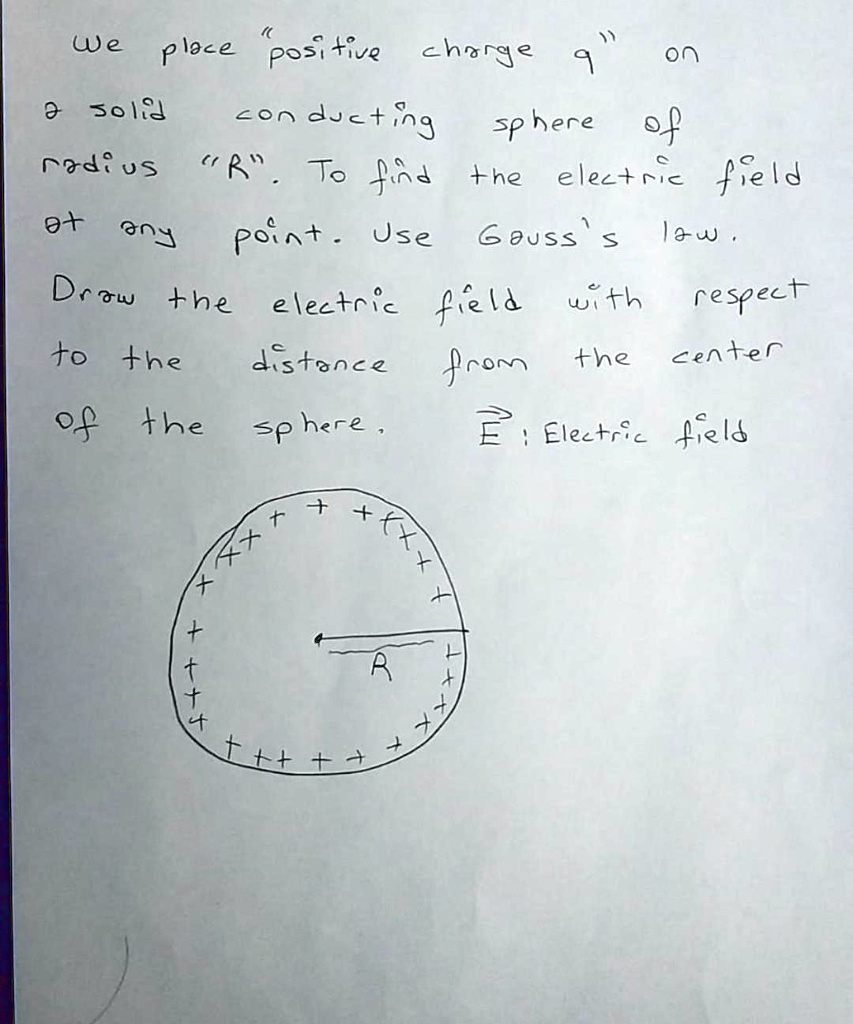 We place "positive charge q" on
a solid conducting sphere of
radius "R". To find the electric field
at any point. Use Gauss's law.
Draw the electric field with respect
to the distance from the center
of the sphere. E⃗ : Electric field
+ + + + + + + + + + + + + + + + + + + + + + + + + + +
R